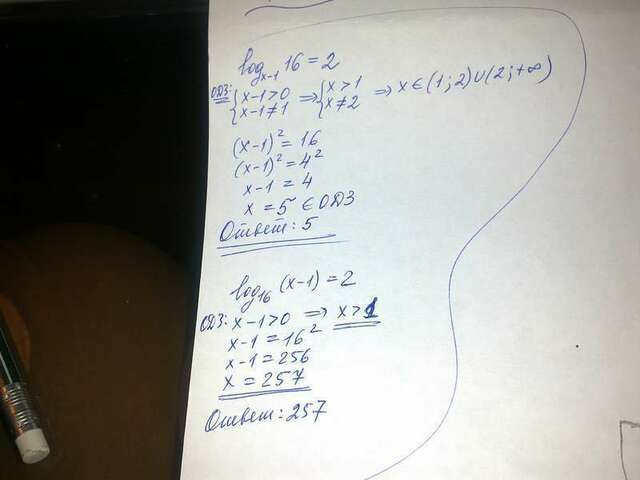 log_{x-1} 16 = 2
ОДЗ: { x-1>0 x-1≠1 ⇒ { x>1 x≠2 ⇒ x∈(1;2)∪(2;+∞)
(x-1)² = 16
(x-1)² = 4²
x-1 = 4
x = 5 ∈ ОДЗ
Ответ: 5
log₁₆ (x-1) = 2
ОДЗ: x-1>0 ⇒ x>1
x-1 = 16²
x-1 = 256
x = 257
Ответ: 257